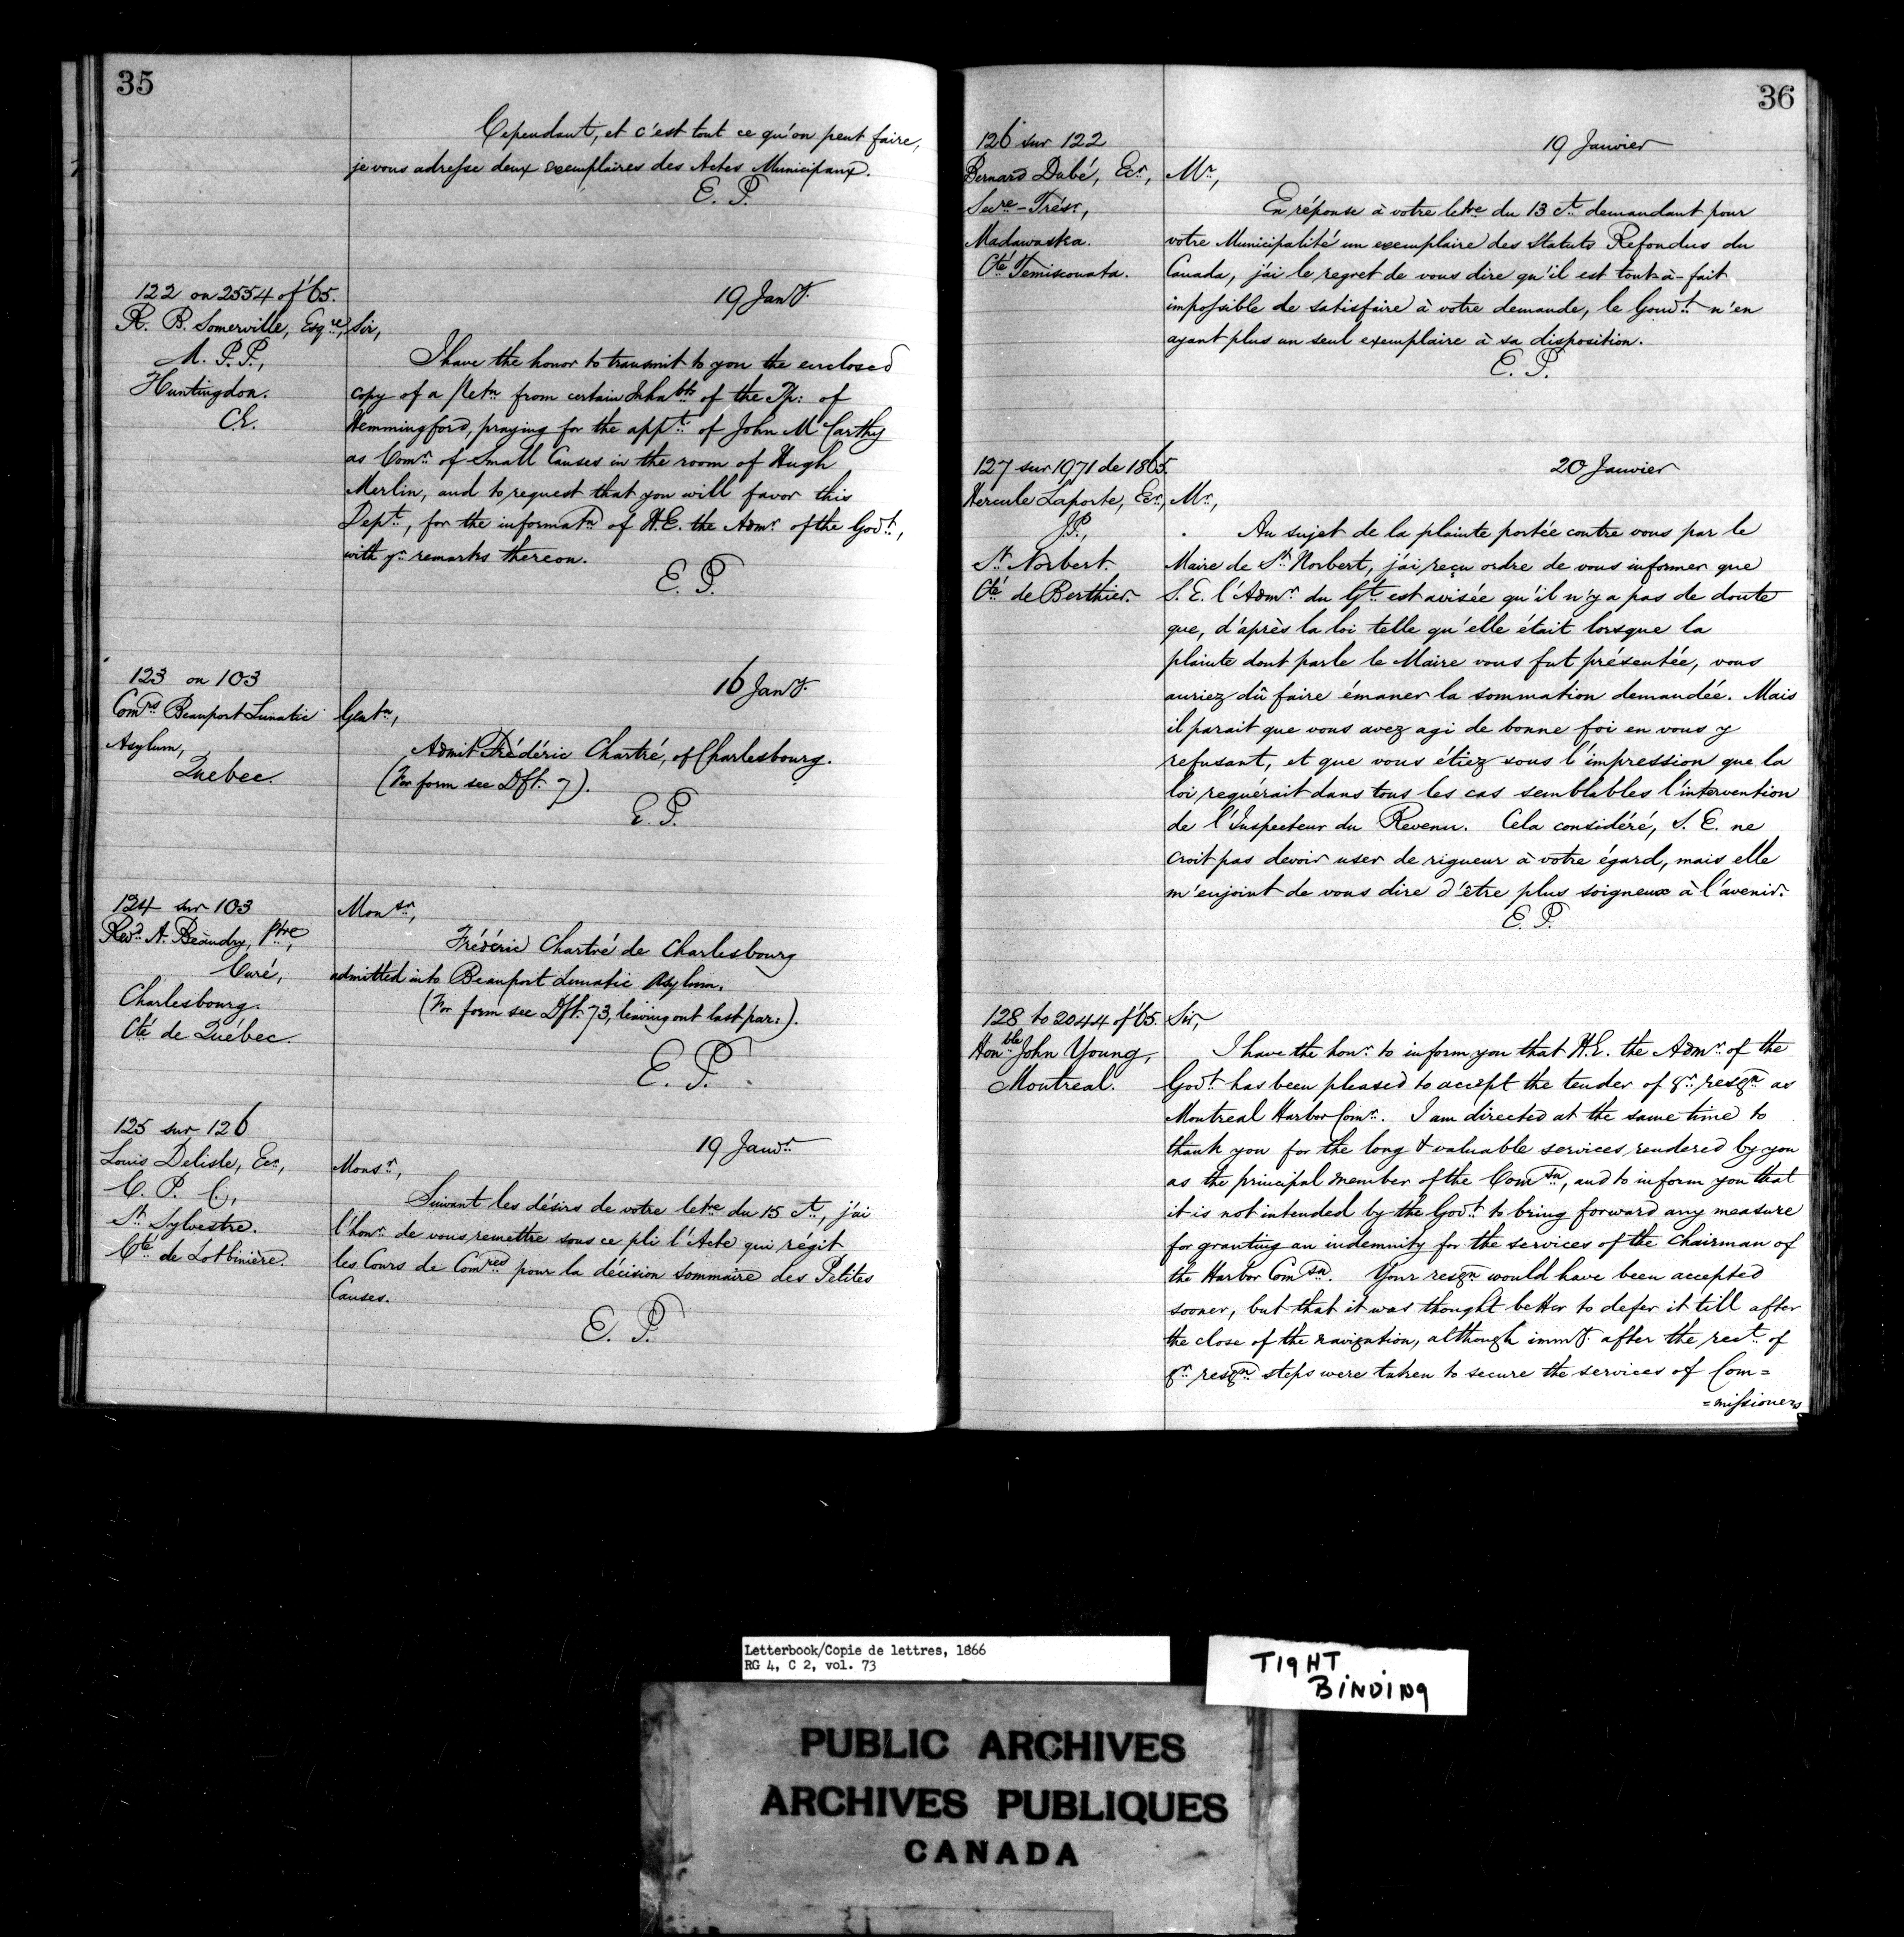 35
Cependant, et c'est tout ce qu'on peut faire,
je vous adresse deux exemplaires des Actes Municipaux.
E. P.
122 on 2554 of '65.
R. B. Somerville, Esqre,
M. P. P.,
Huntingdon.
C.E.
19 Jany.
Sir,
I have the honor to transmit to you the enclosed
copy of a Petn from certain Inhabts of the Tp: of
Hemmingford, praying for the appt. of John McCarthy
as Comr. of Small Causes in the room of Hugh
Merlin, and to request that you will favor this
Dept., for the informatn of H.E. the Admr. of the Govt.,
with yr. remarks thereon.
E. P.
123 on 103
Comrs Beauport Lunatic
Asylum,
Quebec.
16 Jany.
Gentn,
Admit Frédéric Chartré, of Charlesbourg.
(For form see Dft. 7).
E. P.
124 sur 103
Revd. A. Beaudry, Ptre,
Curé,
Charlesbourg.
Cté de Québec.
Monsr,
Frédéric Chartré de Charlesbourg
admitted into Beauport Lunatic Asylum.
(For form see Dft. 73, leaving out last par:).
E. P.
125 sur 126
Louis Delisle, Ecr.,
C. P. C.,
St. Sylvestre.
Cté de Lotbinière.
19 Janvr.
Monsr.,
Suivant les désirs de votre letre du 15 Ct., j'ai
l'honr. de vous remettre sous ce pli l'Acte qui régit
les Cours de Comres pour la décision sommaire des Petites
Causes.
E. P.
36
126 sur 122
Bernard Dubé, Ecr.,
Secre-Trésr.,
Madawaska.
Cté Temiscouata.
19 Janvier
Mr.,
En réponse à votre letre du 13 Ct. demandant pour
votre Municipalité un exemplaire des Statuts Refondus du
Canada, j'ai le regret de vous dire qu'il est tout-à-fait
impossible de satisfaire à votre demande, le Gouvt. n'en
ayant plus un seul exemplaire à sa disposition.
E. P.
127 sur 1971 de 1865.
Hercule Laporte, Ecr.,
J.P.,
St. Norbert.
Cté de Berthier.
20 Janvier
Mr.,
Au sujet de la plainte portée contre vous par le
Maire de St. Norbert, j'ai reçu ordre de vous informer que
S. E. l'Admr. du Gt. est avisée qu'il n'y a pas de doute
que, d'après la loi telle qu'elle était lorsque la
plainte dont parle le Maire vous fut présentée, vous
auriez dû faire émaner la sommation demandée. Mais
il parait que vous avez agi de bonne foi en vous y
refusant, et que vous étiez sous l'impression que la
loi requérait dans tous les cas semblables l'intervention
de l'Inspecteur du Revenu. Cela considéré, S. E. ne
croit pas devoir user de rigueur à votre égard, mais elle
m'enjoint de vous dire d'être plus soigneux à l'avenir.
E. P.
128 to 2044 of '65.
Honble John Young,
Montreal.
Sir,
I have the honr. to inform you that H.E. the Admr. of the
Govt. has been pleased to accept the tender of yr. resgn as
Montreal Harbor Comr. I am directed at the same time to
thank you for the long & valuable services rendered by you
as the principal member of the Comsn, and to inform you that
it is not intended by the Govt. to bring forward any measure
for granting an indemnity for the services of the Chairman of
the Harbor Comsn. Your resgn would have been accepted
sooner, but that it was thought better to defer it till after
the close of the navigation, although immy. after the rect. of
yr. resgn steps were taken to secure the services of Com=
=missioners
Letterbook/Copie de lettres, 1866
RG 4, C 2, vol. 73
TIGHT
BINDING
PUBLIC ARCHIVES
ARCHIVES PUBLIQUES
CANADA